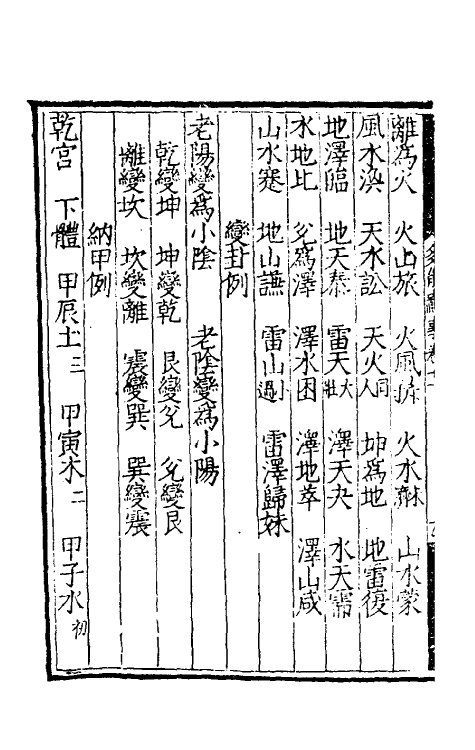 離爲火　火山旅　火風鼎　火水𣸣　山水蒙
風水渙　天水訟　天火同人　坤爲地　地雷復
地澤臨　地天泰　雷天大壯　澤天夬　水天需
水地比　兊爲澤　澤水困　澤地萃　澤山咸
山水蹇　地山謙　雷山小過　雷澤歸妹
變卦例
老陽變爲小陰　老陰變爲小陽
乾變坤　坤變乾　艮變兊　兊變艮
離變坎　坎變離　震變巽　巽變震
納甲例
乾宮　下體　甲辰土三　甲寅木二　甲子水初